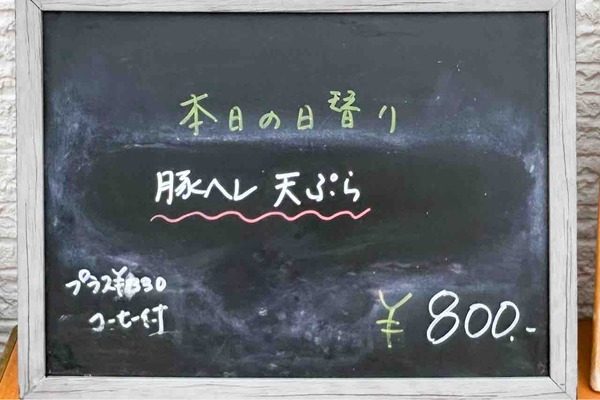 本日の日替り
豚ヘレ 天ぷら
プラス¥330
コーヒー付
¥800.-